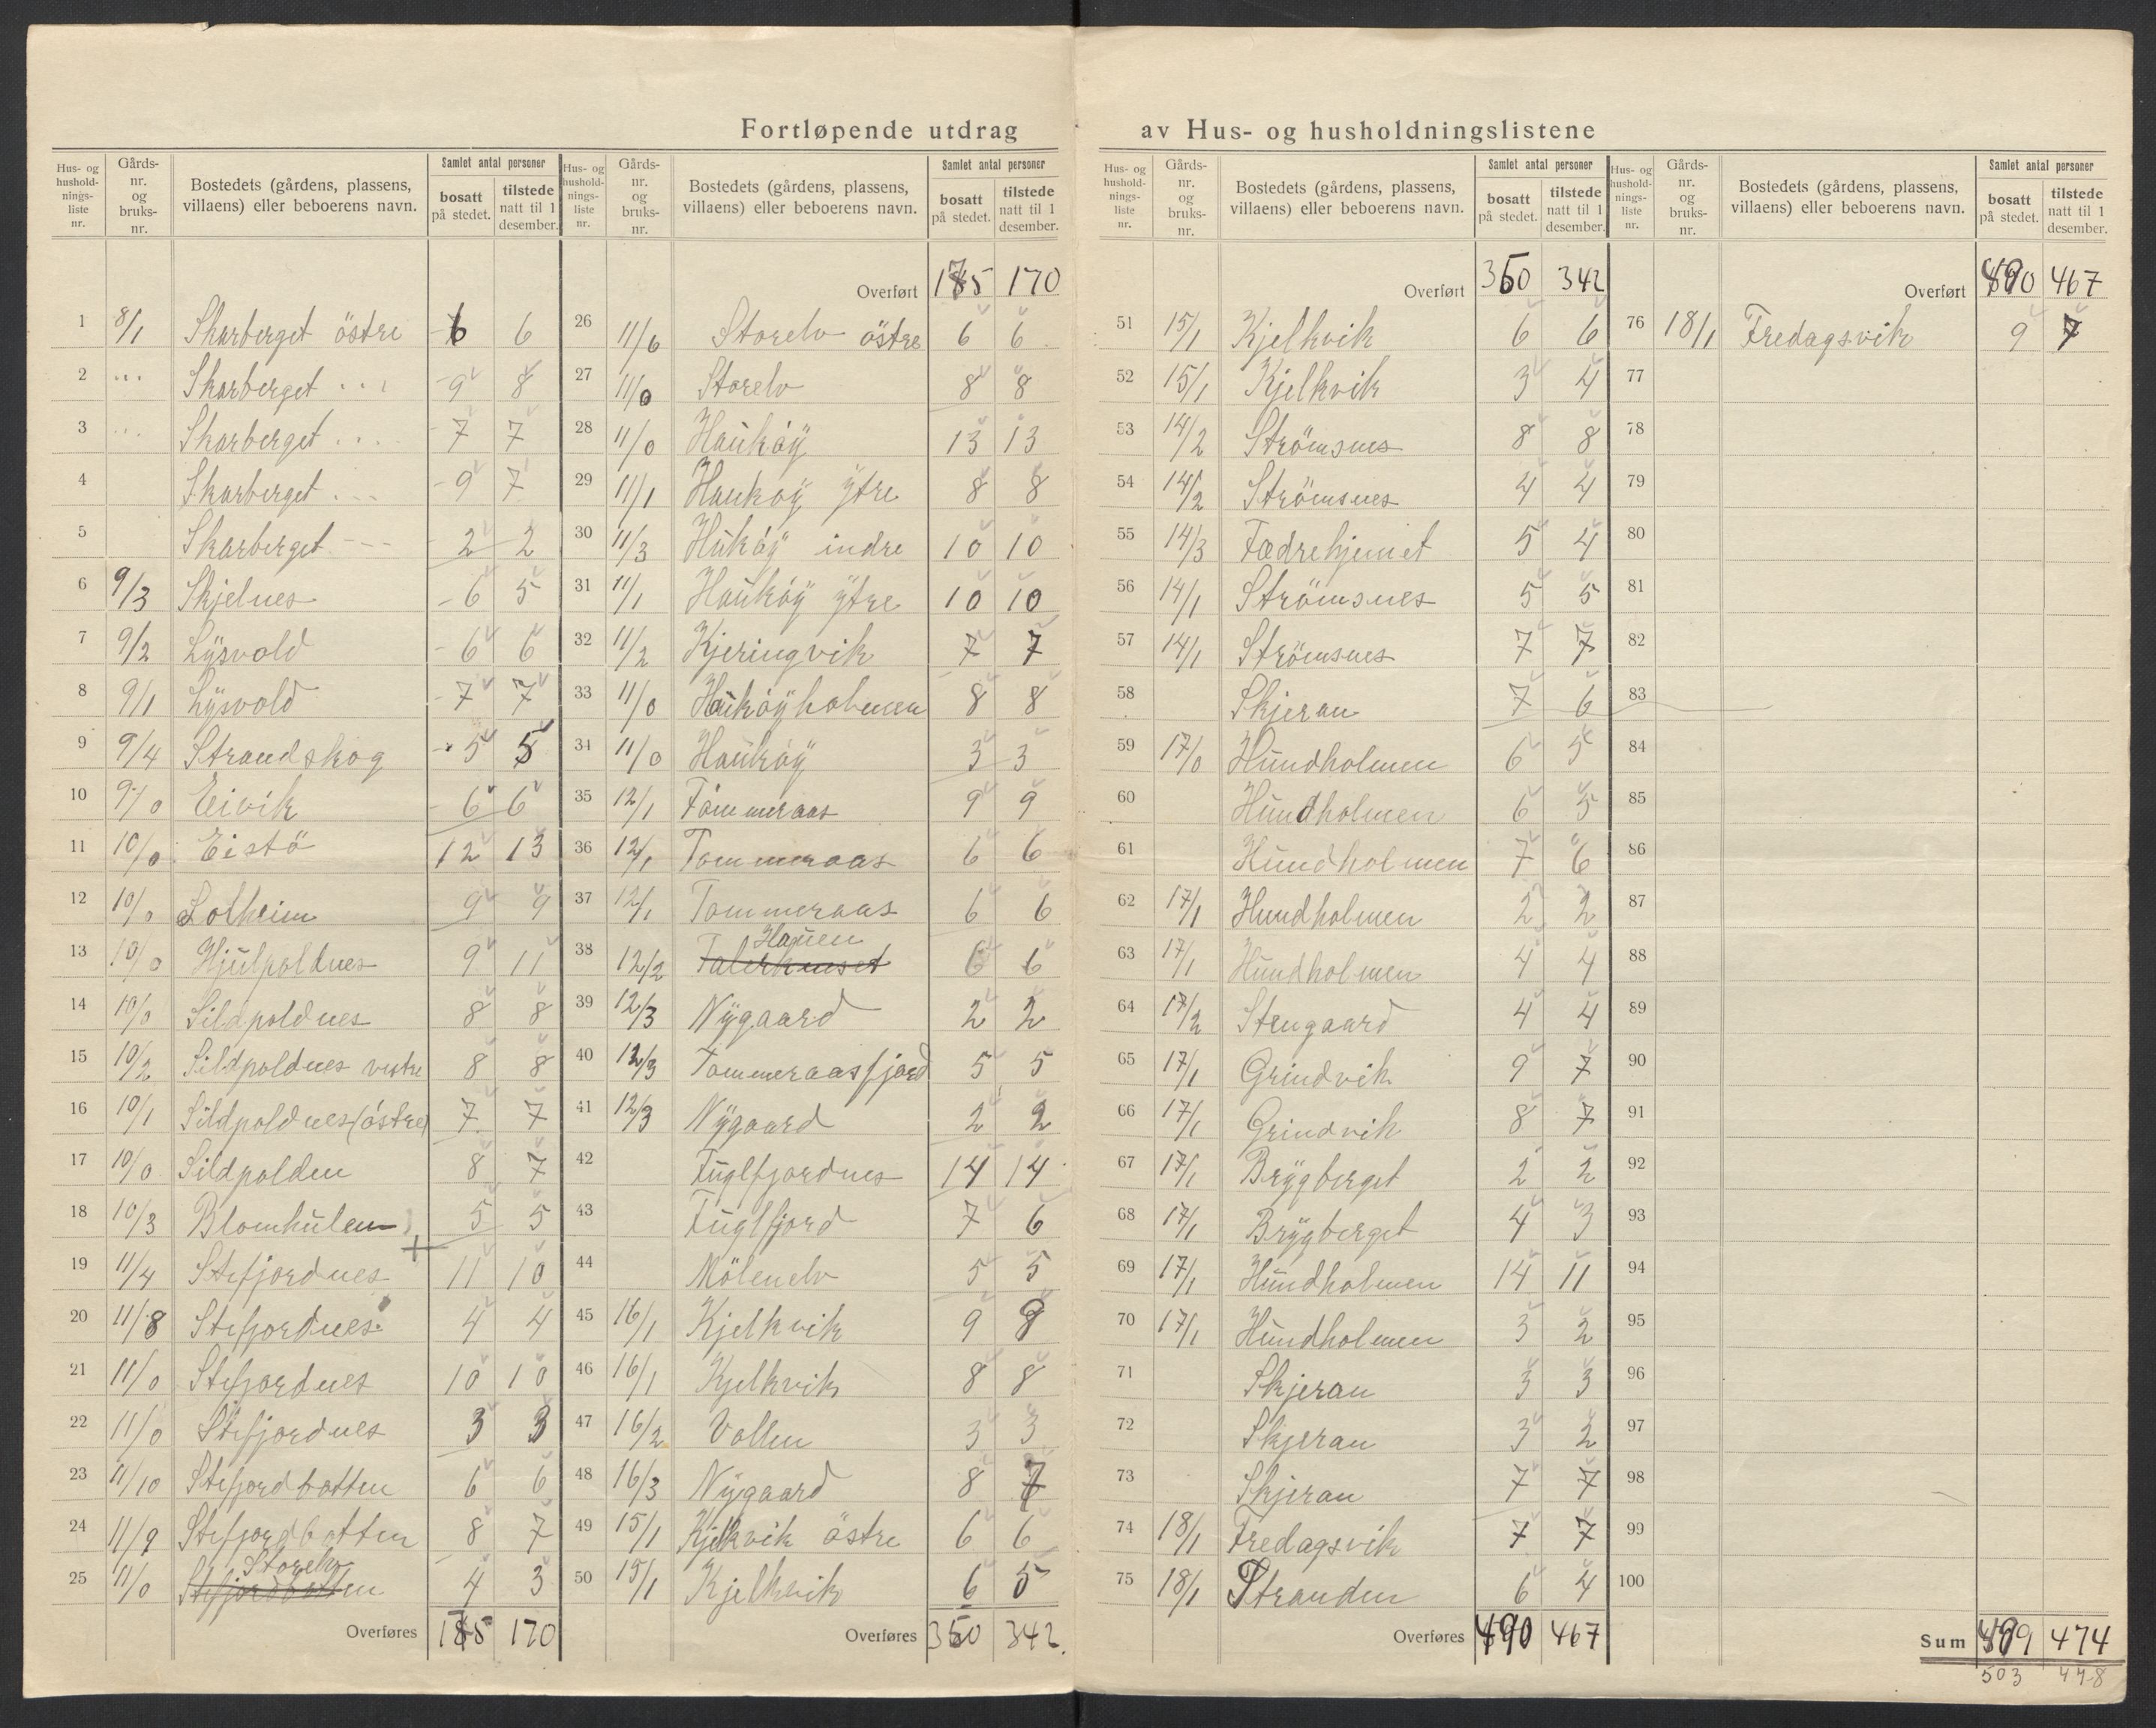 Fortløpende utdrag av Hus- og husholdningslistene
Hus- og husholdnings-liste nr. | Gårds-nr. og bruks-nr. | Bostedets (gårdens, plassens, villaens) eller beboerens navn. | Samlet antal personer | bosatt på stedet. | tilstede natt til 1 desember.
1 8/1 Skarberget östre 6 6
2 ... Skarberget ... 9 8
3 ... Skarberget .... 7 7
4 Skarberget ... 9 7
5 Skarberget --- 2 2
6 9/3 Skjelnes 6 5
7 9/2 Lysvold 6 6
8 9/1 Lysvold 7 7
9 9/4 Strandskog 5 5
10 9/0 Eivik 6 6
11 10/0 Eistö 12 13
12 10/0 Lotheim 9 9
13 10/0 Hjulpoldnes 9 11
14 10/0 Sildpoldnes 8 8
15 10/2 Sildpoldnes vestre 8 8
16 10/1 Sildpoldnes (östre) 7 7
17 10/0 Sildpolden 8 7
18 10/3 Blomhulen 5 5
19 11/4 Stefjordnes 11 10
20 11/8 Stefjordnes 4 4
21 11/0 Stefjordnes 10 10
22 11/0 Stefjordnes 3 3
23 11/10 Stefjordbotten 6 6
24 11/9 Stefjordbotten 8 7
Storelv
25 11/0 Stefjordbotten 4 3
Overføres 175 170
Hus- og husholdnings-liste nr. | Gårds-nr. og bruks-nr. | Bostedets (gårdens, plassens, villaens) eller beboerens navn. | Samlet antal personer | bosatt på stedet. | tilstede natt til 1 desember.
Overført 175 170
26 11/6 Storelv östre 6 6
27 11/0 Storelv 8 8
28 11/0 Haukøy 13 13
29 11/1 Haukøy ytre 8 8
30 11/3 Hukøy indre 10 10
31 11/1 Haukøy ytre 10 10
32 11/2 Kjeringvik 7 7
33 11/0 Haukøyholmen 8 8
34 11/0 Haukøy 3 3
35 12/1 Tömmeraas 9 9
36 12/1 Tommeraas 6 6
37 12/1 Tommeraas 6 6
Haugen
38 12/2 6 6
39 12/3 Nygaard 2 2
40 12/3 Tommeraasfjord 5 5
41 12/3 Nygaard 2 2
42 Fuglfjordnes 14 14
43 Fuglfjord 7 6
44 Mölnelv 5 5
45 16/1 Kjelkvik 9 9
46 16/1 Kjelkvik 8 8
47 16/2 Vollen 3 3
48 16/3 Nygaard 8 7
49 15/1 Kjelkvik östre 6 6
50 15/1 Kjelkvik 6 5
Overføres 350 342
Hus- og husholdnings-liste nr. | Gårds-nr. og bruks-nr. | Bostedets (gårdens, plassens, villaens) eller beboerens navn. | Samlet antal personer | bosatt på stedet. | tilstede natt til 1 desember.
Overført 350 342
51 15/1 Kjelkvik 6 6
52 15/1 Kjelkvik 3 4
53 14/2 Strömsnes 8 8
54 14/2 Strömsnes 4 4
55 14/3 Fædrehjemet 5 4
56 14/1 Strömsnes 5 5
57 14/1 Strömsnes 7 7
58 Skjeran 7 6
59 17/0 Hundholmen 6 5
60 Hundholmen 6 5
61 Hundholmen 7 6
62 17/1 Hundholmen 2 2
63 17/1 Hundholmen 4 4
64 17/2 Stengaard 4 4
65 17/1 Grindvik 9 7
66 17/1 Grindvik 8 7
67 17/1 Brygberget 2 2
68 17/1 Brygberget 4 3
69 17/1 Hundholmen 14 11
70 17/1 Hundholmen 3 2
71 Skjeran 3 3
72 Skjeran 3 2
73 Skjeran 7 7
74 18/1 Fredagsvik 7 7
75 18/1 Stranden 6 4
Overføres 490 467
Hus- og husholdnings-liste nr. | Gårds-nr. og bruks-nr. | Bostedets (gårdens, plassens, villaens) eller beboerens navn. | Samlet antal personer | bosatt på stedet. | tilstede natt til 1 desember.
Overført 490 467
76 18/1 Fredagsvik 9 7
77
78
79
80
81
82
83
84
85
86
87
88
89
90
91
92
93
94
95
96
97
98
99
100
Sum 499 474
503 478